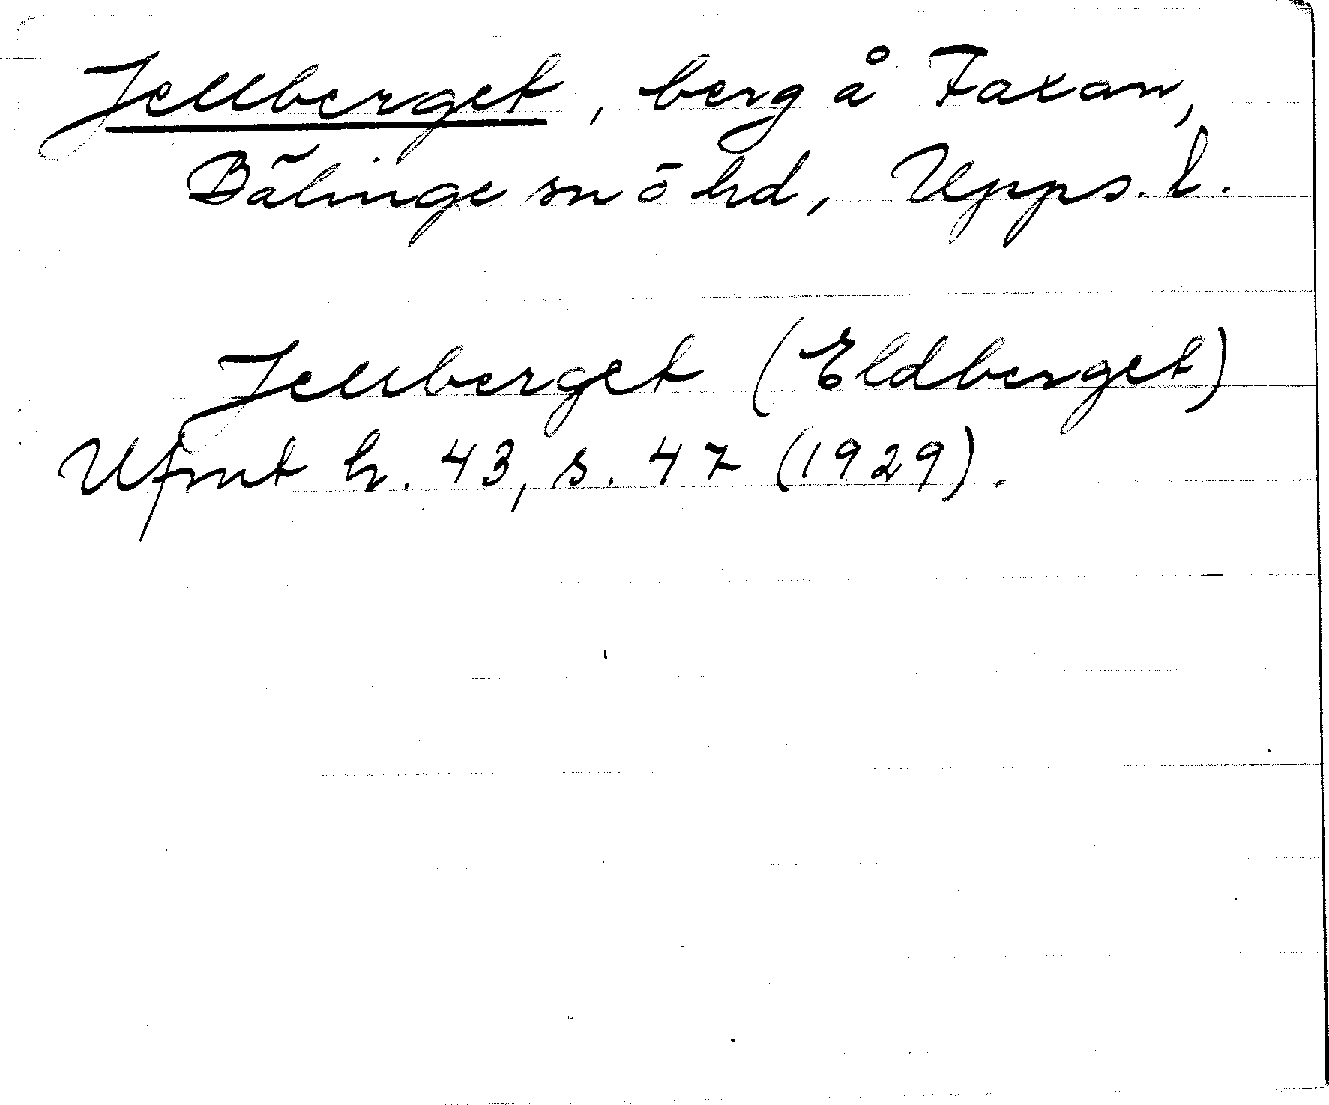 Jellberget, berg å Faxan,
Bälinge sn ō hd, Upps. l.
Jellberget (Eldberget)
Ufmt h. 43, s. 47 (1929).